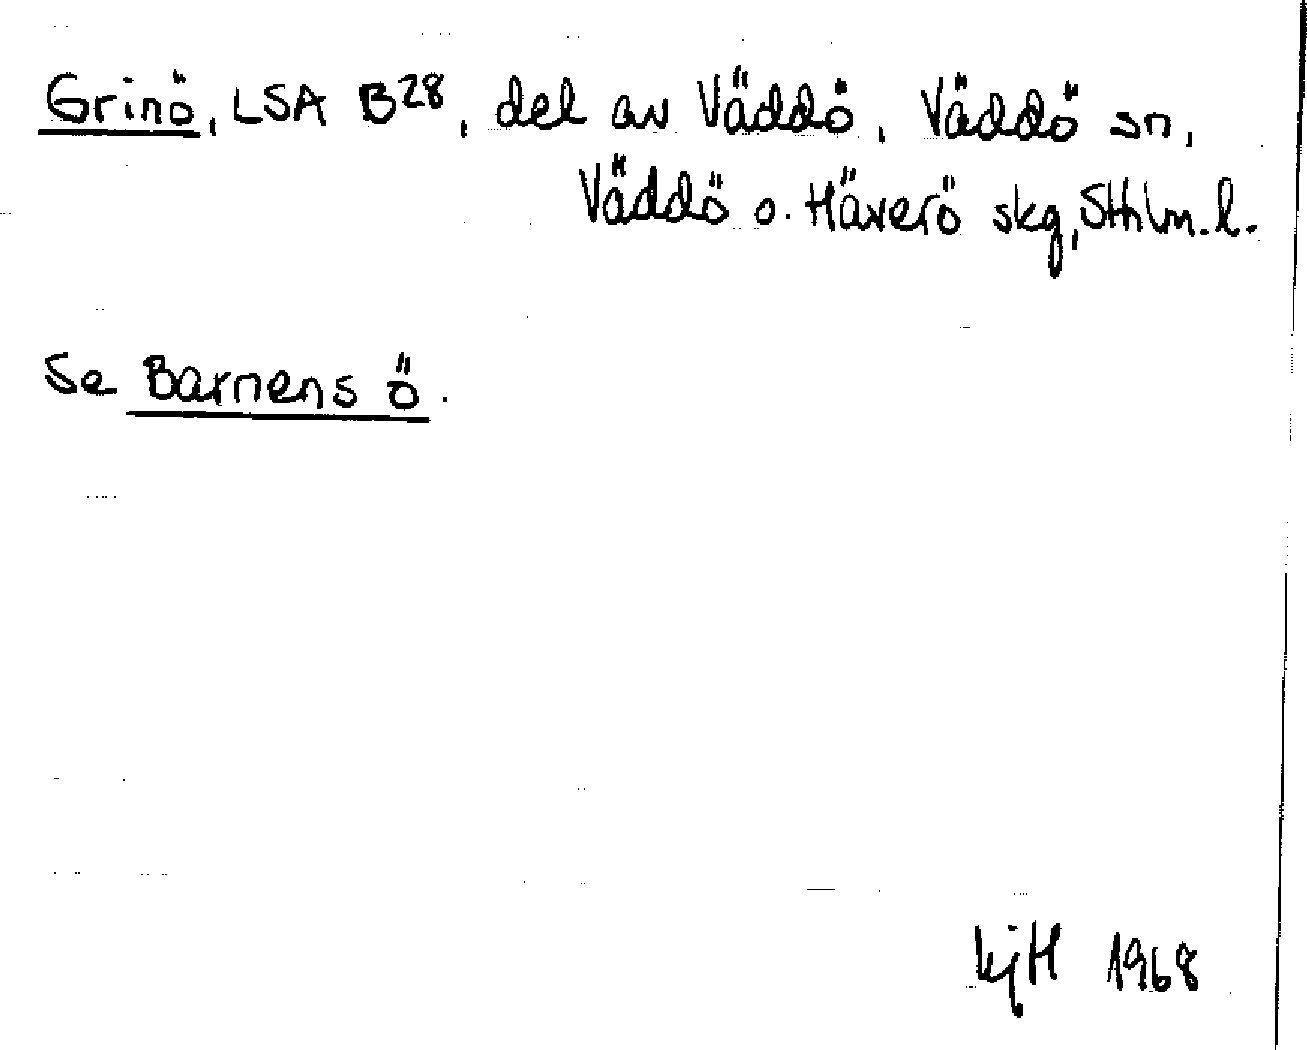 Grinö, LSA B28, del av Väddö, Väddö sn,
Väddö o. Häverö skg, Sthlm. l.
Se Barnens ö.
1968